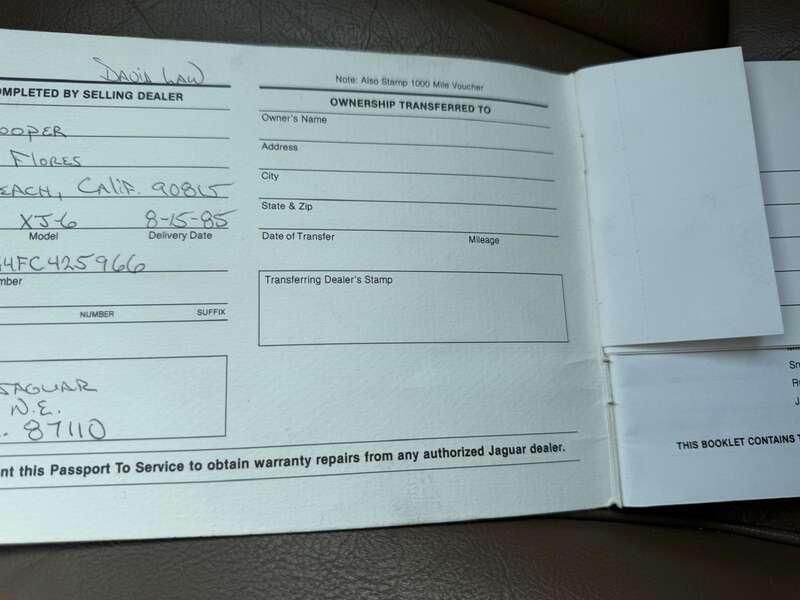 David Law
OMPLETED BY SELLING DEALER
OOPER
FLORES
EACH, CALIF. 90815
XJ-6 8-15-85
Model Delivery Date
4FC425966
mber
NUMBER SUFFIX
JAGUAR
N.E.
. 87110
Note: Also Stamp 1000 Mile Voucher
OWNERSHIP TRANSFERRED TO
Owner's Name
Address
City
State & Zip
Date of Transfer Mileage
Transferring Dealer's Stamp
nt this Passport To Service to obtain warranty repairs from any authorized Jaguar dealer.
Sn
R
J
THIS BOOKLET CONTAINS T